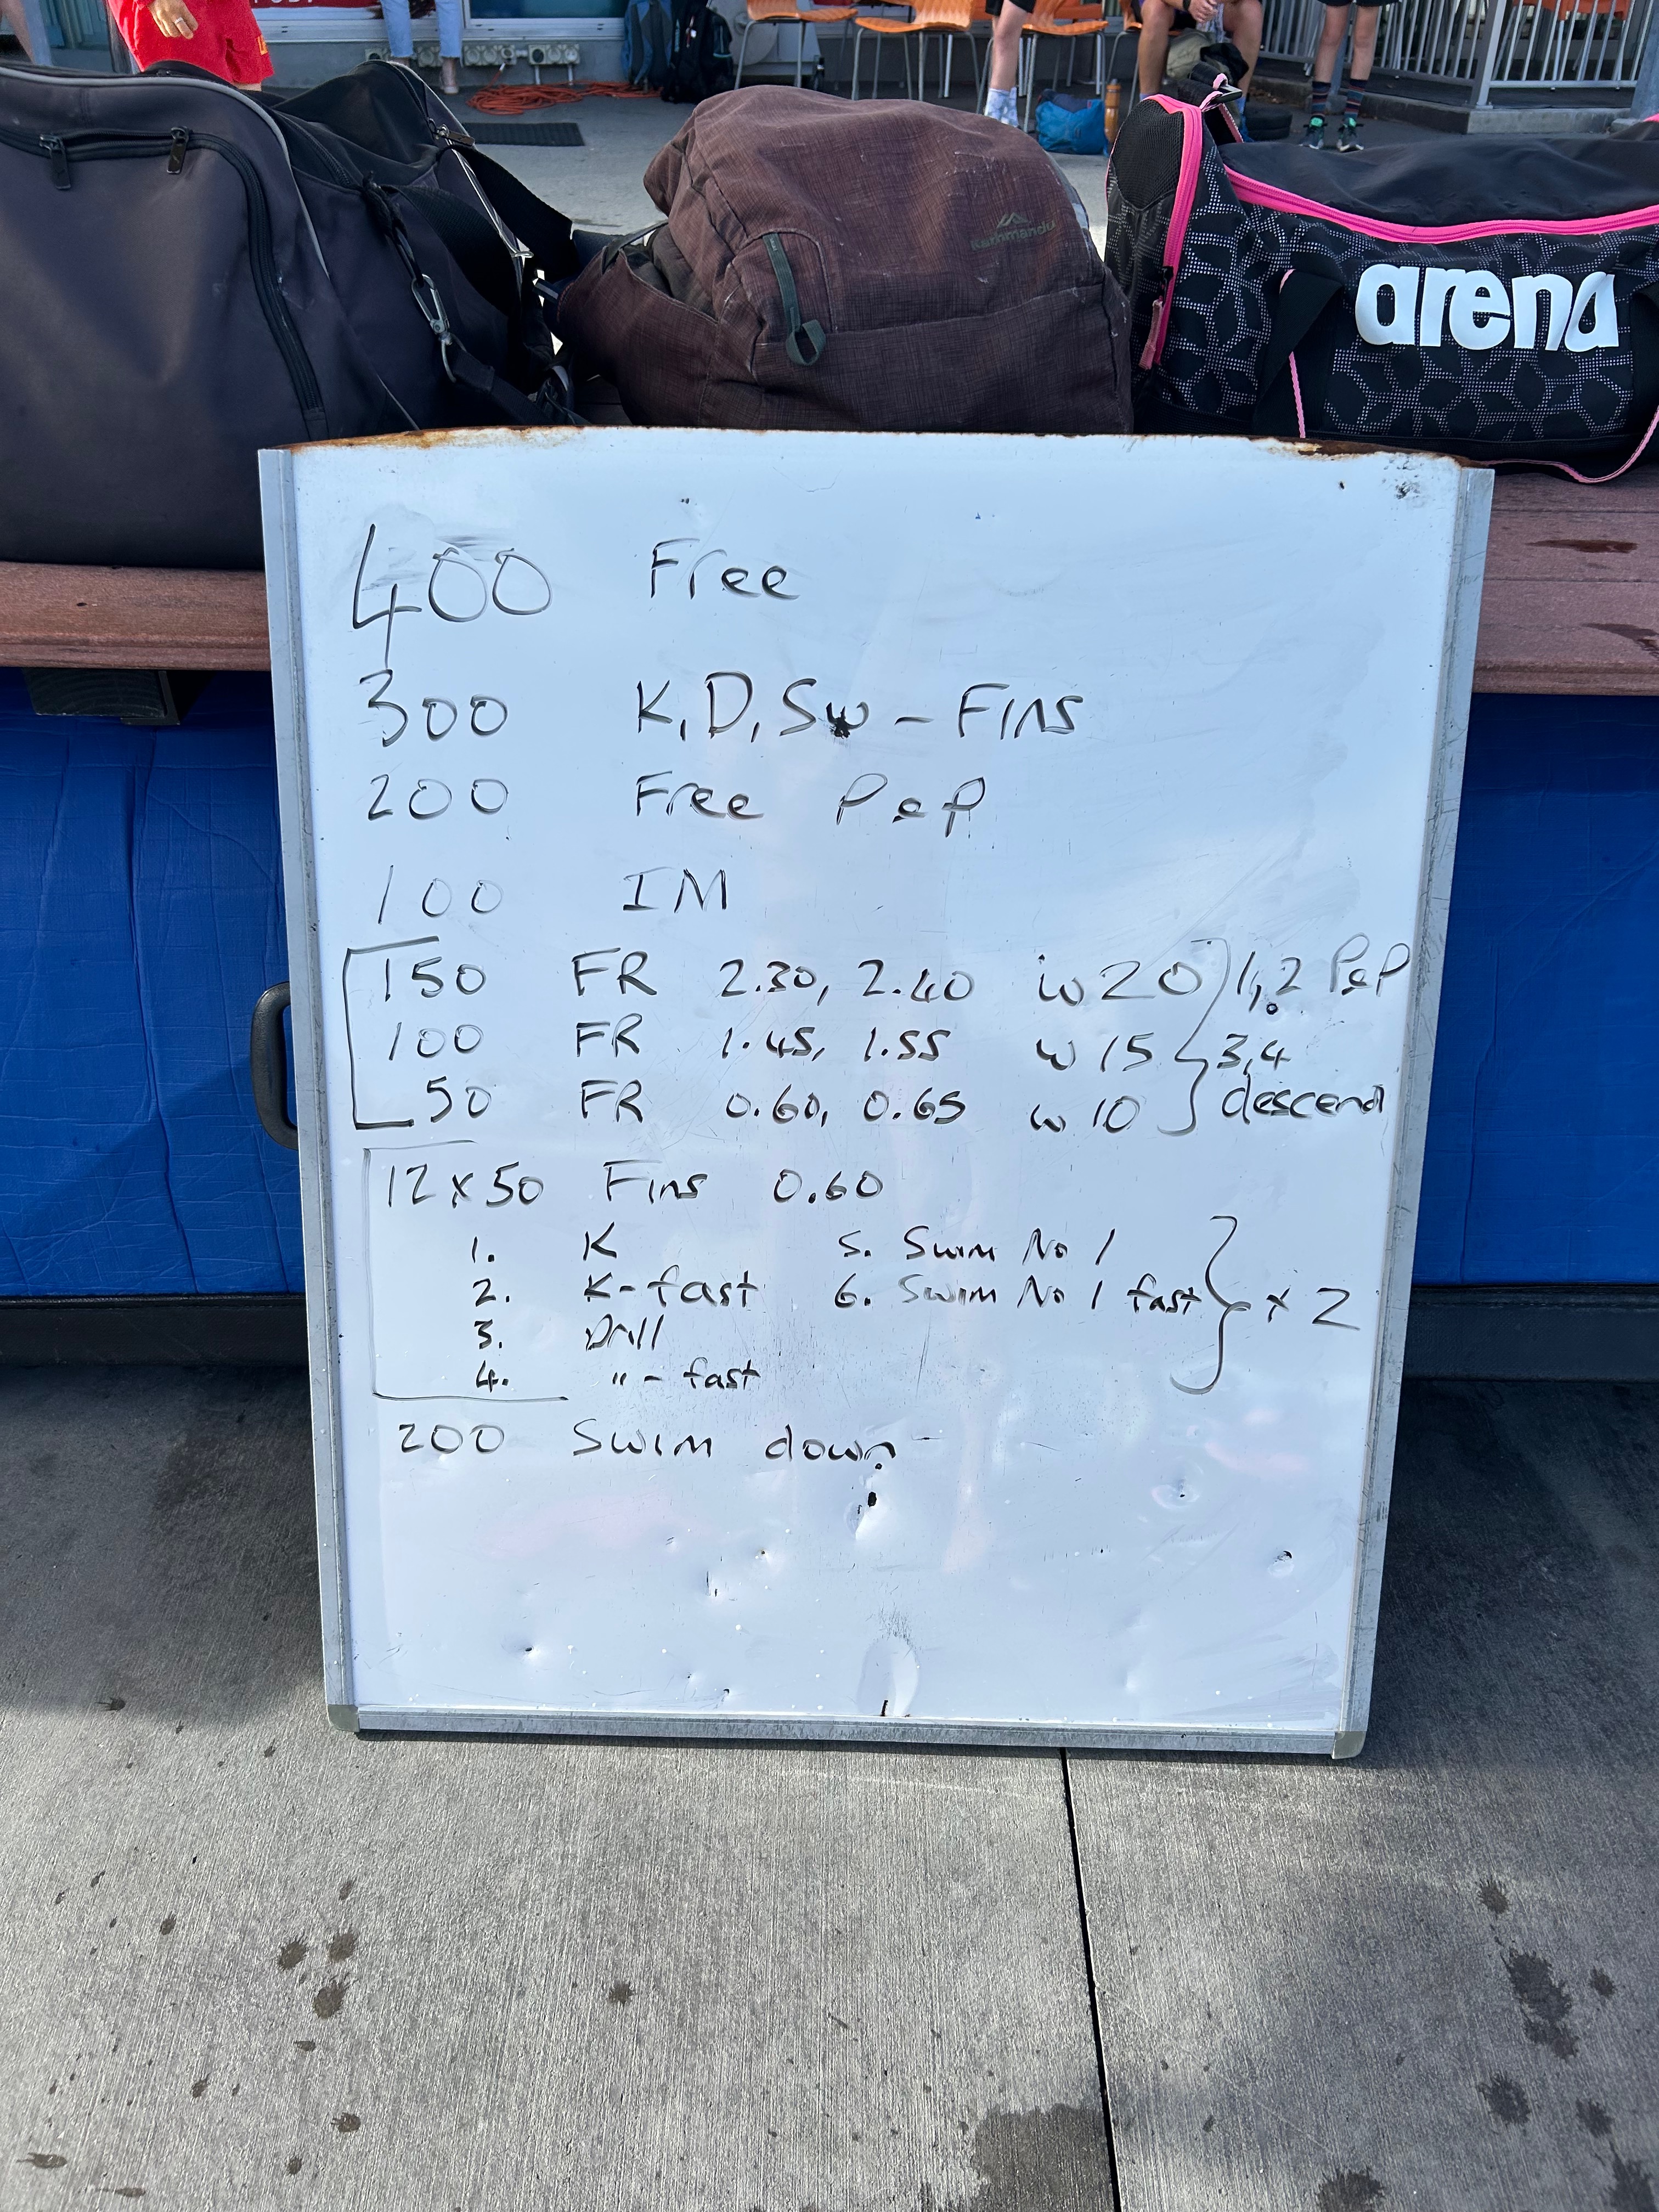 Kathmandu
arena
400 Free
300 K, D, Sw - Fins
200 Free P&P
100 IM
150 FR 2.30, 2.40 w 20 } 1,2 P&P
100 FR 1.45, 1.55 w 15 } 3,4
50 FR 0.60, 0.65 w 10 } descend
12 x 50 Fins 0.60
1. K 5. Swim No 1
2. K - fast 6. Swim No 1 fast } x 2
3. Drill
4. " - fast
200 Swim down